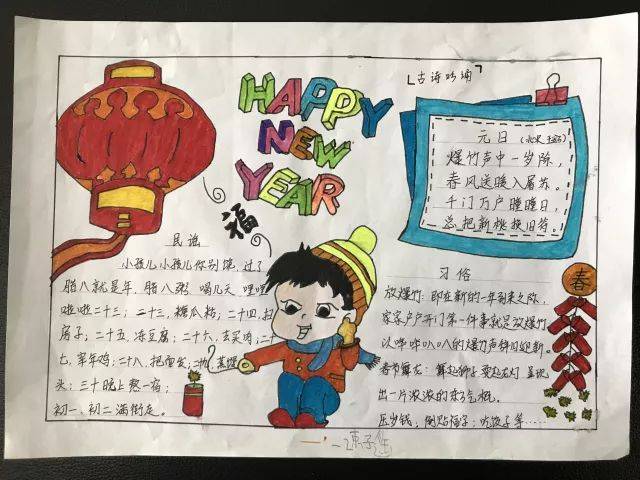 HAPPY
NEW
YEAR
「古诗吟诵」
元日（北宋 王安石）
爆竹声中一岁除，
春风送暖入屠苏。
千门万户曈曈日，
总把新桃换旧符。
福
民谣
小孩儿小孩儿你别馋，过了
腊八就是年，腊八粥，喝几天，哩哩
啦啦二十三；二十三，糖瓜粘；二十四，扫
房子；二十五，冻豆腐；二十六，去买肉；二十
七，宰年鸡；二十八，把面发；二十九，蒸馒
头；三十晚上熬一宿；
初一、初二满街走。
习俗
放爆竹：即在新的一年到来之际，
家家户户开门第一件事就是放爆竹
以哔哔叭叭的爆竹声辞旧迎新。
春节舞龙：舞起狮子
出一片浓浓的
压岁钱，倒贴福字；吃饺子等……
春